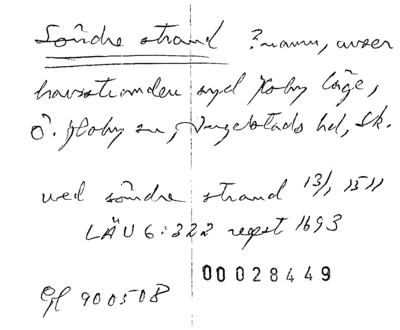 Söndre strand ?namn, avser
havsstranden syd Hoby läge,
Ö. Hoby sn, Ingelstads hd, Sk.
wed söndre strand 13/1 1511
LÄU 6:322 regest 1693
00028449
900508